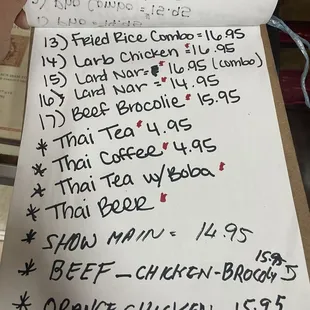 13) Fried Rice Combo = 16.95
14) Larb Chicken = 16.95
15) Lard Nar = 16.95 (combo)
16) Lard Nar = 14.95
17) Beef Brocolie 15.95
* Thai Tea 4.95
* Thai Coffee 4.95
* Thai Tea w/Boba
* Thai Beer
* SHOW MAIN = 14.95
15.95
* BEEF - CHICKEN - BROCOLY
* ORANGE CHICKEN 15.95